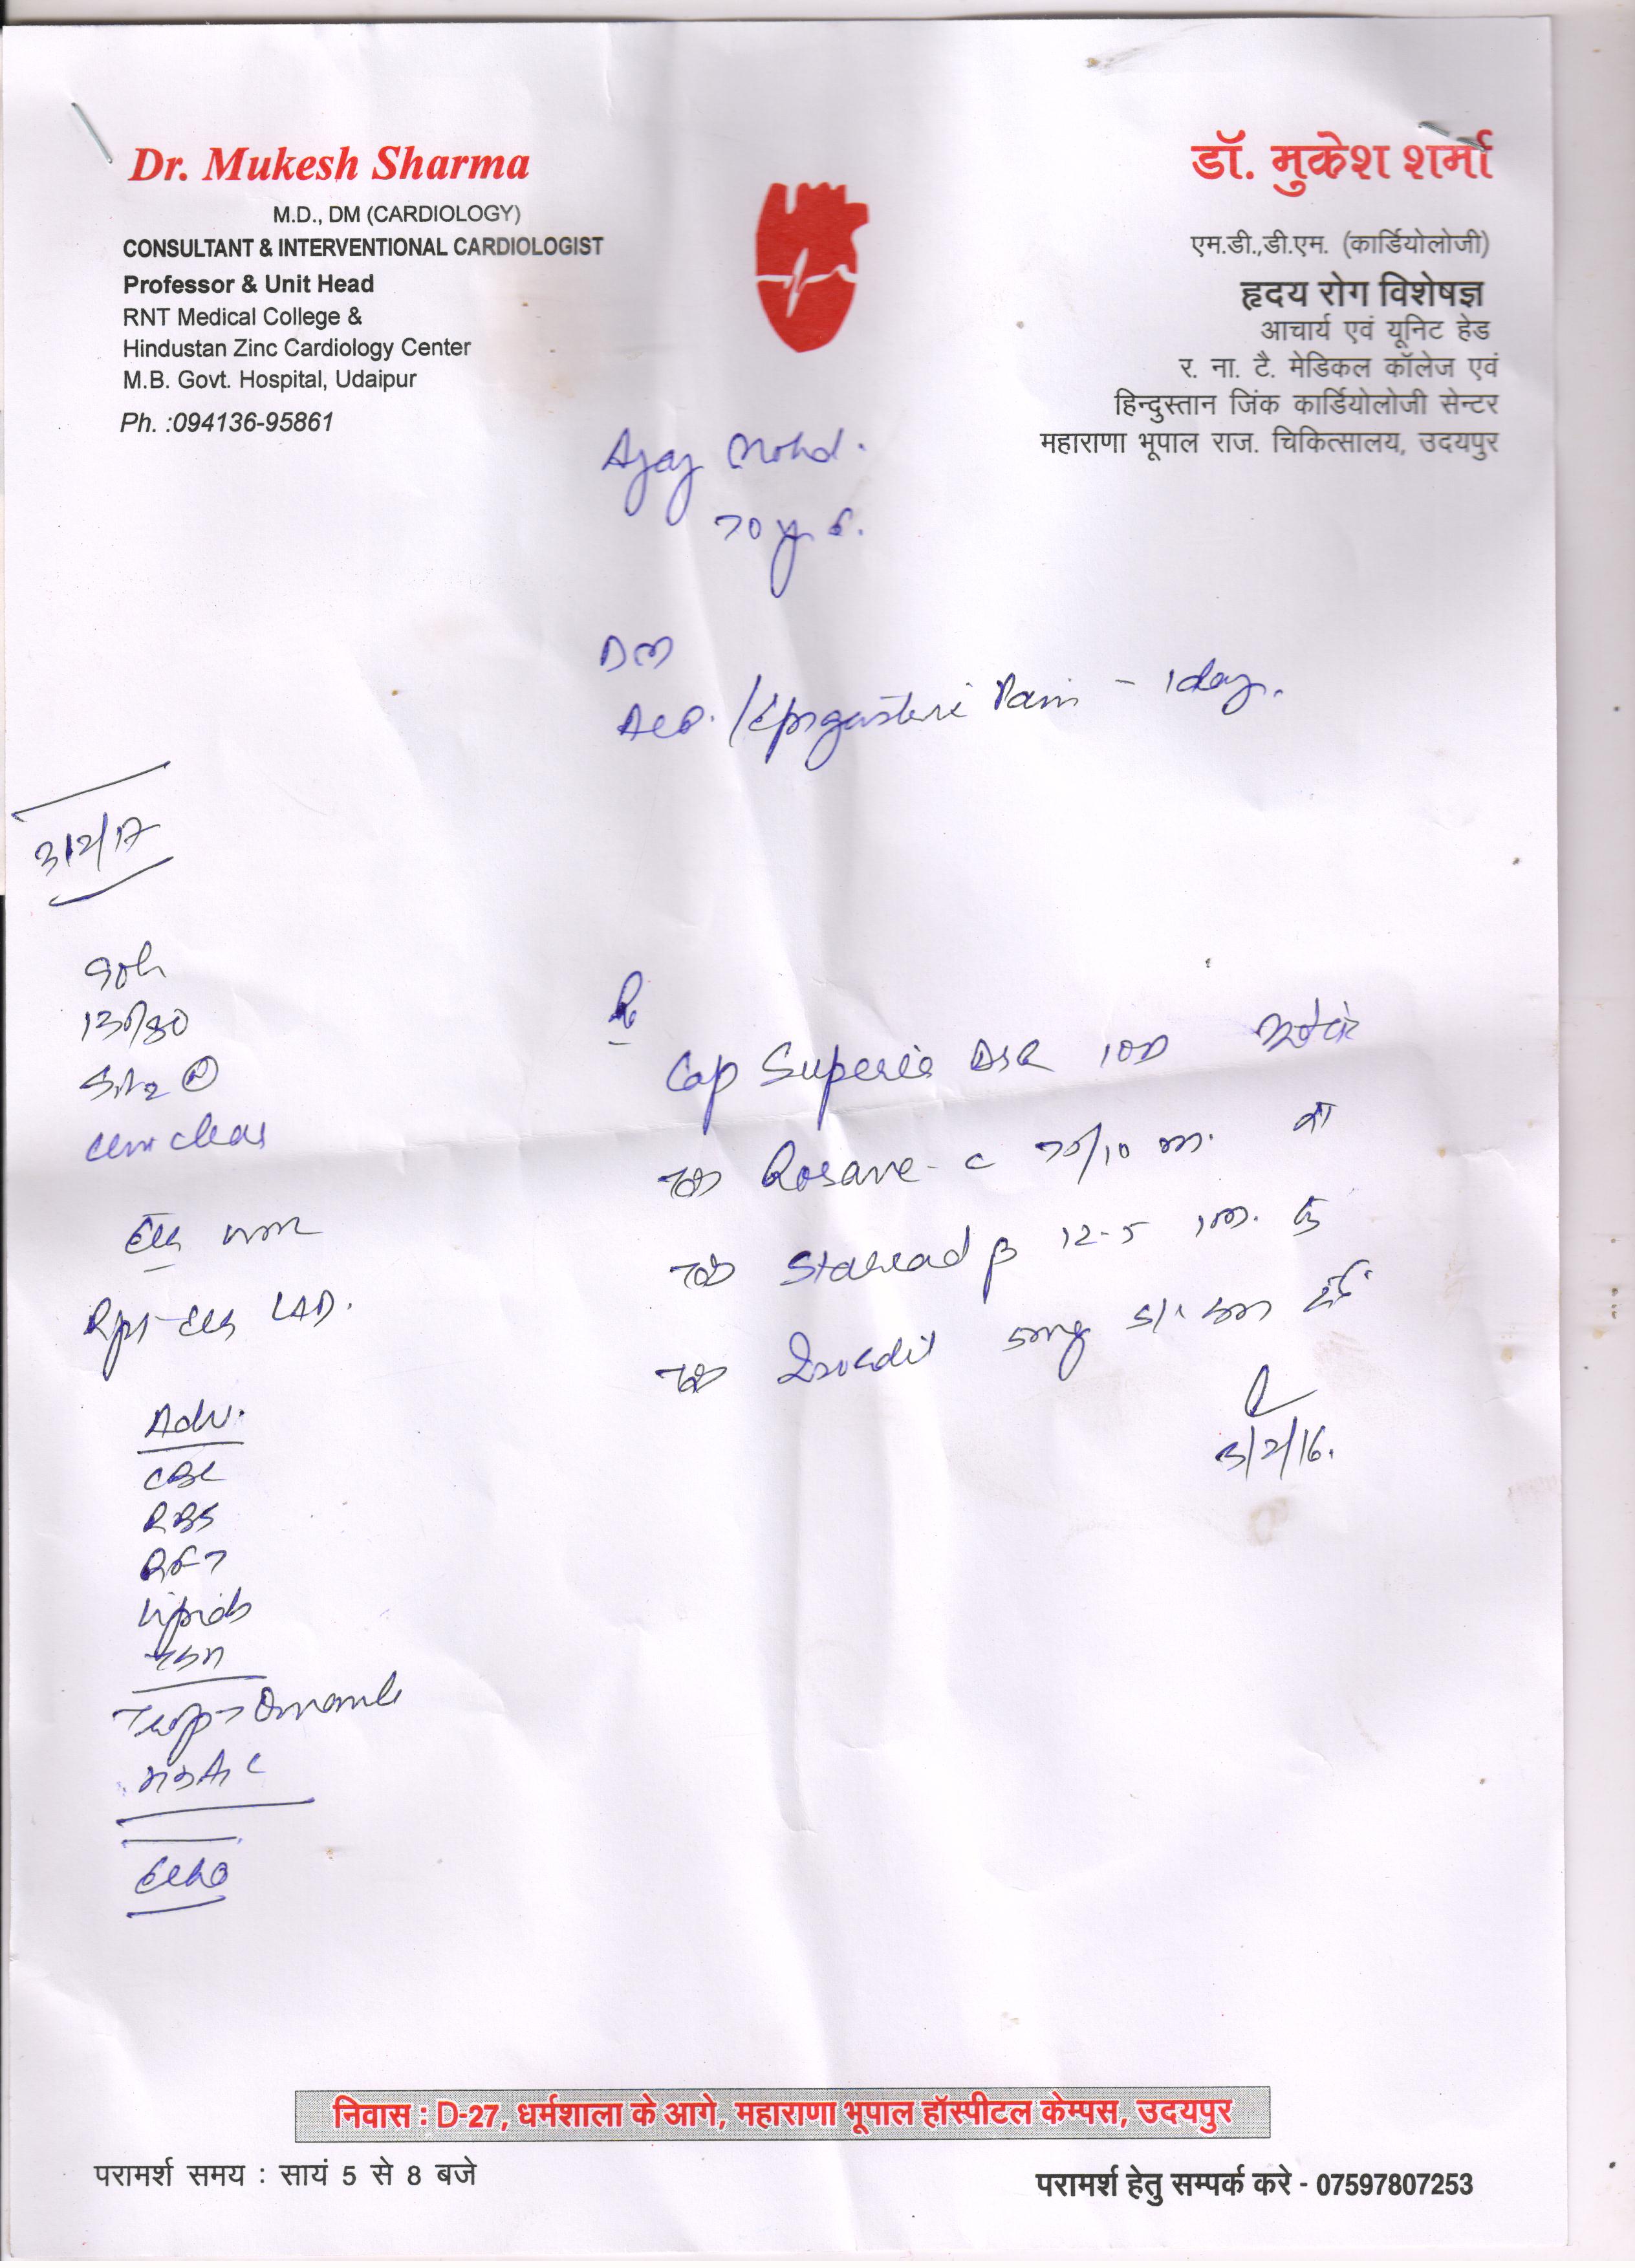 Dr. Mukesh Sharma
M.D., DM (CARDIOLOGY)
CONSULTANT & INTERVENTIONAL CARDIOLOGIST
Professor & Unit Head
RNT Medical College &
Hindustan Zinc Cardiology Center
M.B. Govt. Hospital, Udaipur
Ph. :094136-95861
डॉ. मुकेश शर्मा
एम.डी.,डी.एम. (कार्डियोलोजी)
हृदय रोग विशेषज्ञ
आचार्य एवं यूनिट हेड
र. ना. टै. मेडिकल कॉलेज एवं
हिन्दुस्तान जिंक कार्डियोलोजी सेन्टर
महाराणा भूपाल राज. चिकित्सालय, उदयपुर
Ajaj Mohd.
70 y
DM
/Epigastric Pain - 1day.
3/2/17
130/80
clear
LAD.
R
Cap Superia DSR 10D
Tab Rosave-C 75/10
Tab Starcad β 12.5
Tab Isordil 5mg S/L
3/2/16.
Adv.
CBC
RBS
RFT
Lipids
TSH
Trop-T
HbA1C
Echo
निवास : D-27, धर्मशाला के आगे, महाराणा भूपाल हॉस्पीटल केम्पस, उदयपुर
परामर्श समय : सायं 5 से 8 बजे
परामर्श हेतु सम्पर्क करे - 07597807253